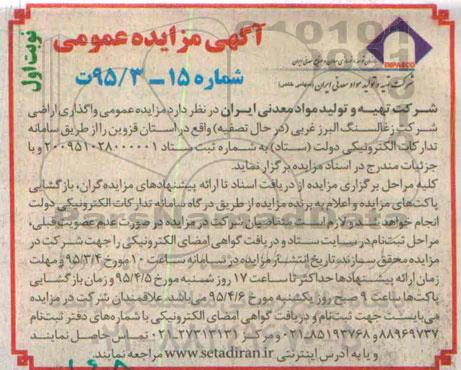 نوبت اول
آگهی مزایده عمومی
شماره ۱۵-۹۵/۳ت
IMPASCO
شرکت تهیه و تولید مواد معدنی ایران
شرکت تهیه و تولید مواد معدنی ایران در نظر دارد مزایده عمومی واگذاری اراضی
شرکت زغالسنگ البرز غربی (در حال تصفیه) واقع در استان قزوین را از طریق سامانه
تدارکات الکترونیکی دولت (ستاد) به شماره ثبت ستاد ۲۰۰۹۵۱۰۲۸۰۰۰۰۱ و با
جزئیات مندرج در اسناد مزایده برگزار نماید.
کلیه مراحل برگزاری مزایده از دریافت اسناد تا ارائه پیشنهادهای مزایده‌گران، بازگشایی
پاکت‌های مزایده و اعلام به برنده مزایده از طریق درگاه سامانه تدارکات الکترونیکی دولت
انجام خواهد شد و لازم است متقاضیان شرکت در مزایده در صورت عدم عضویت قبلی،
مراحل ثبت‌نام در سایت ستاد و دریافت گواهی امضای الکترونیکی را جهت شرکت در
مزایده محقق سازند. تاریخ انتشار مزایده در سامانه ساعت ۱۰ مورخ ۹۵/۳/۴ و مهلت
زمان ارائه پیشنهادها حداکثر تا ساعت ۱۷ روز شنبه مورخ ۹۵/۴/۵ و زمان بازگشایی
پاکت‌ها ساعت ۹ صبح روز یکشنبه مورخ ۹۵/۴/۶ می‌باشد. علاقمندان شرکت در مزایده
می‌بایست جهت ثبت‌نام و دریافت گواهی امضای الکترونیکی با شماره‌های دفتر ثبت‌نام
۸۸۹۶۹۷۳۷ و ۰۲۱-۸۵۱۹۳۷۶۸ و مرکز ۰۲۱-۲۷۳۱۳۱۳۱ تماس حاصل نمایند
و یا به آدرس اینترنتی www.setadiran.ir مراجعه نمایند.